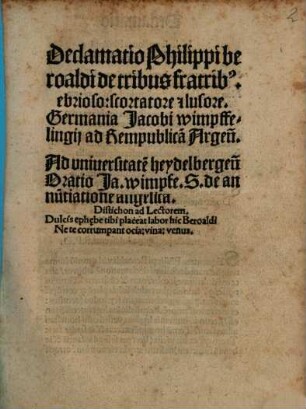 Declamatio Philippi be
roaldi de tribus fratribꝰ.
ebrioso: scortatore ⁊ lusore.
Germania Jacobi wimpffe-
lingij ad Rempublicā Argeñ.
Ad universitatē heydelbergeñ
Oratio Ja. wimpfe. S. de an
nūtiatione angelica.
Distichon ad Lectorem.
Dulcis ephębe tibi placeat labor hic Beroaldi
Ne te corrumpant ocia: vina: venus.